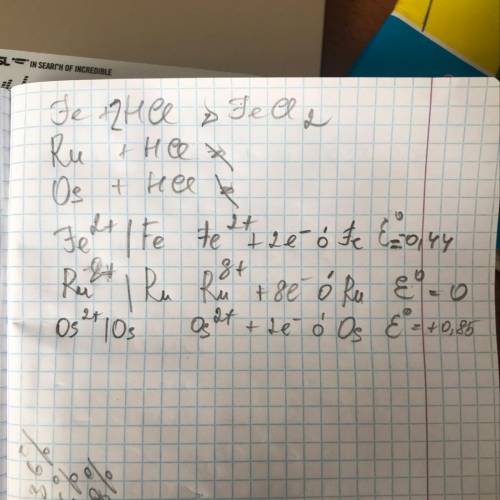 IN SEARCH OF INCREDIBLE
Fe + 2HCl > FeCl2
Ru + HCl ≯
Os + HCl ≯
Fe²⁺ | Fe Fe²⁺ + 2e⁻ ó Fe Ɛ⁰ = -0,44
Ru⁸⁺ | Ru Ru⁸⁺ + 8e⁻ ó Ru Ɛ⁰ = 0
Os²⁺ | Os Os²⁺ + 2e⁻ ó Os Ɛ⁰ = +0,85